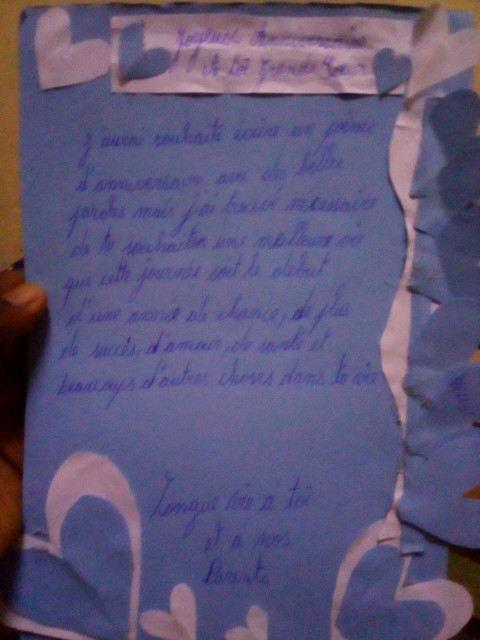 Joyeux Anniversaire
A toi grande Sœur
J'aurai souhaité ecrire un poème
d'anniversaire avec des belles
paroles mais j'ai trouvé nécessaire
de te souhaiter une meilleure vie
que cette journée soit le debut
d'une année de chance, de plus
de succès, d'amour, de santé et
beaucoups d'autres choses dans ta vie
Longue vie à toi
et a nos
Parents